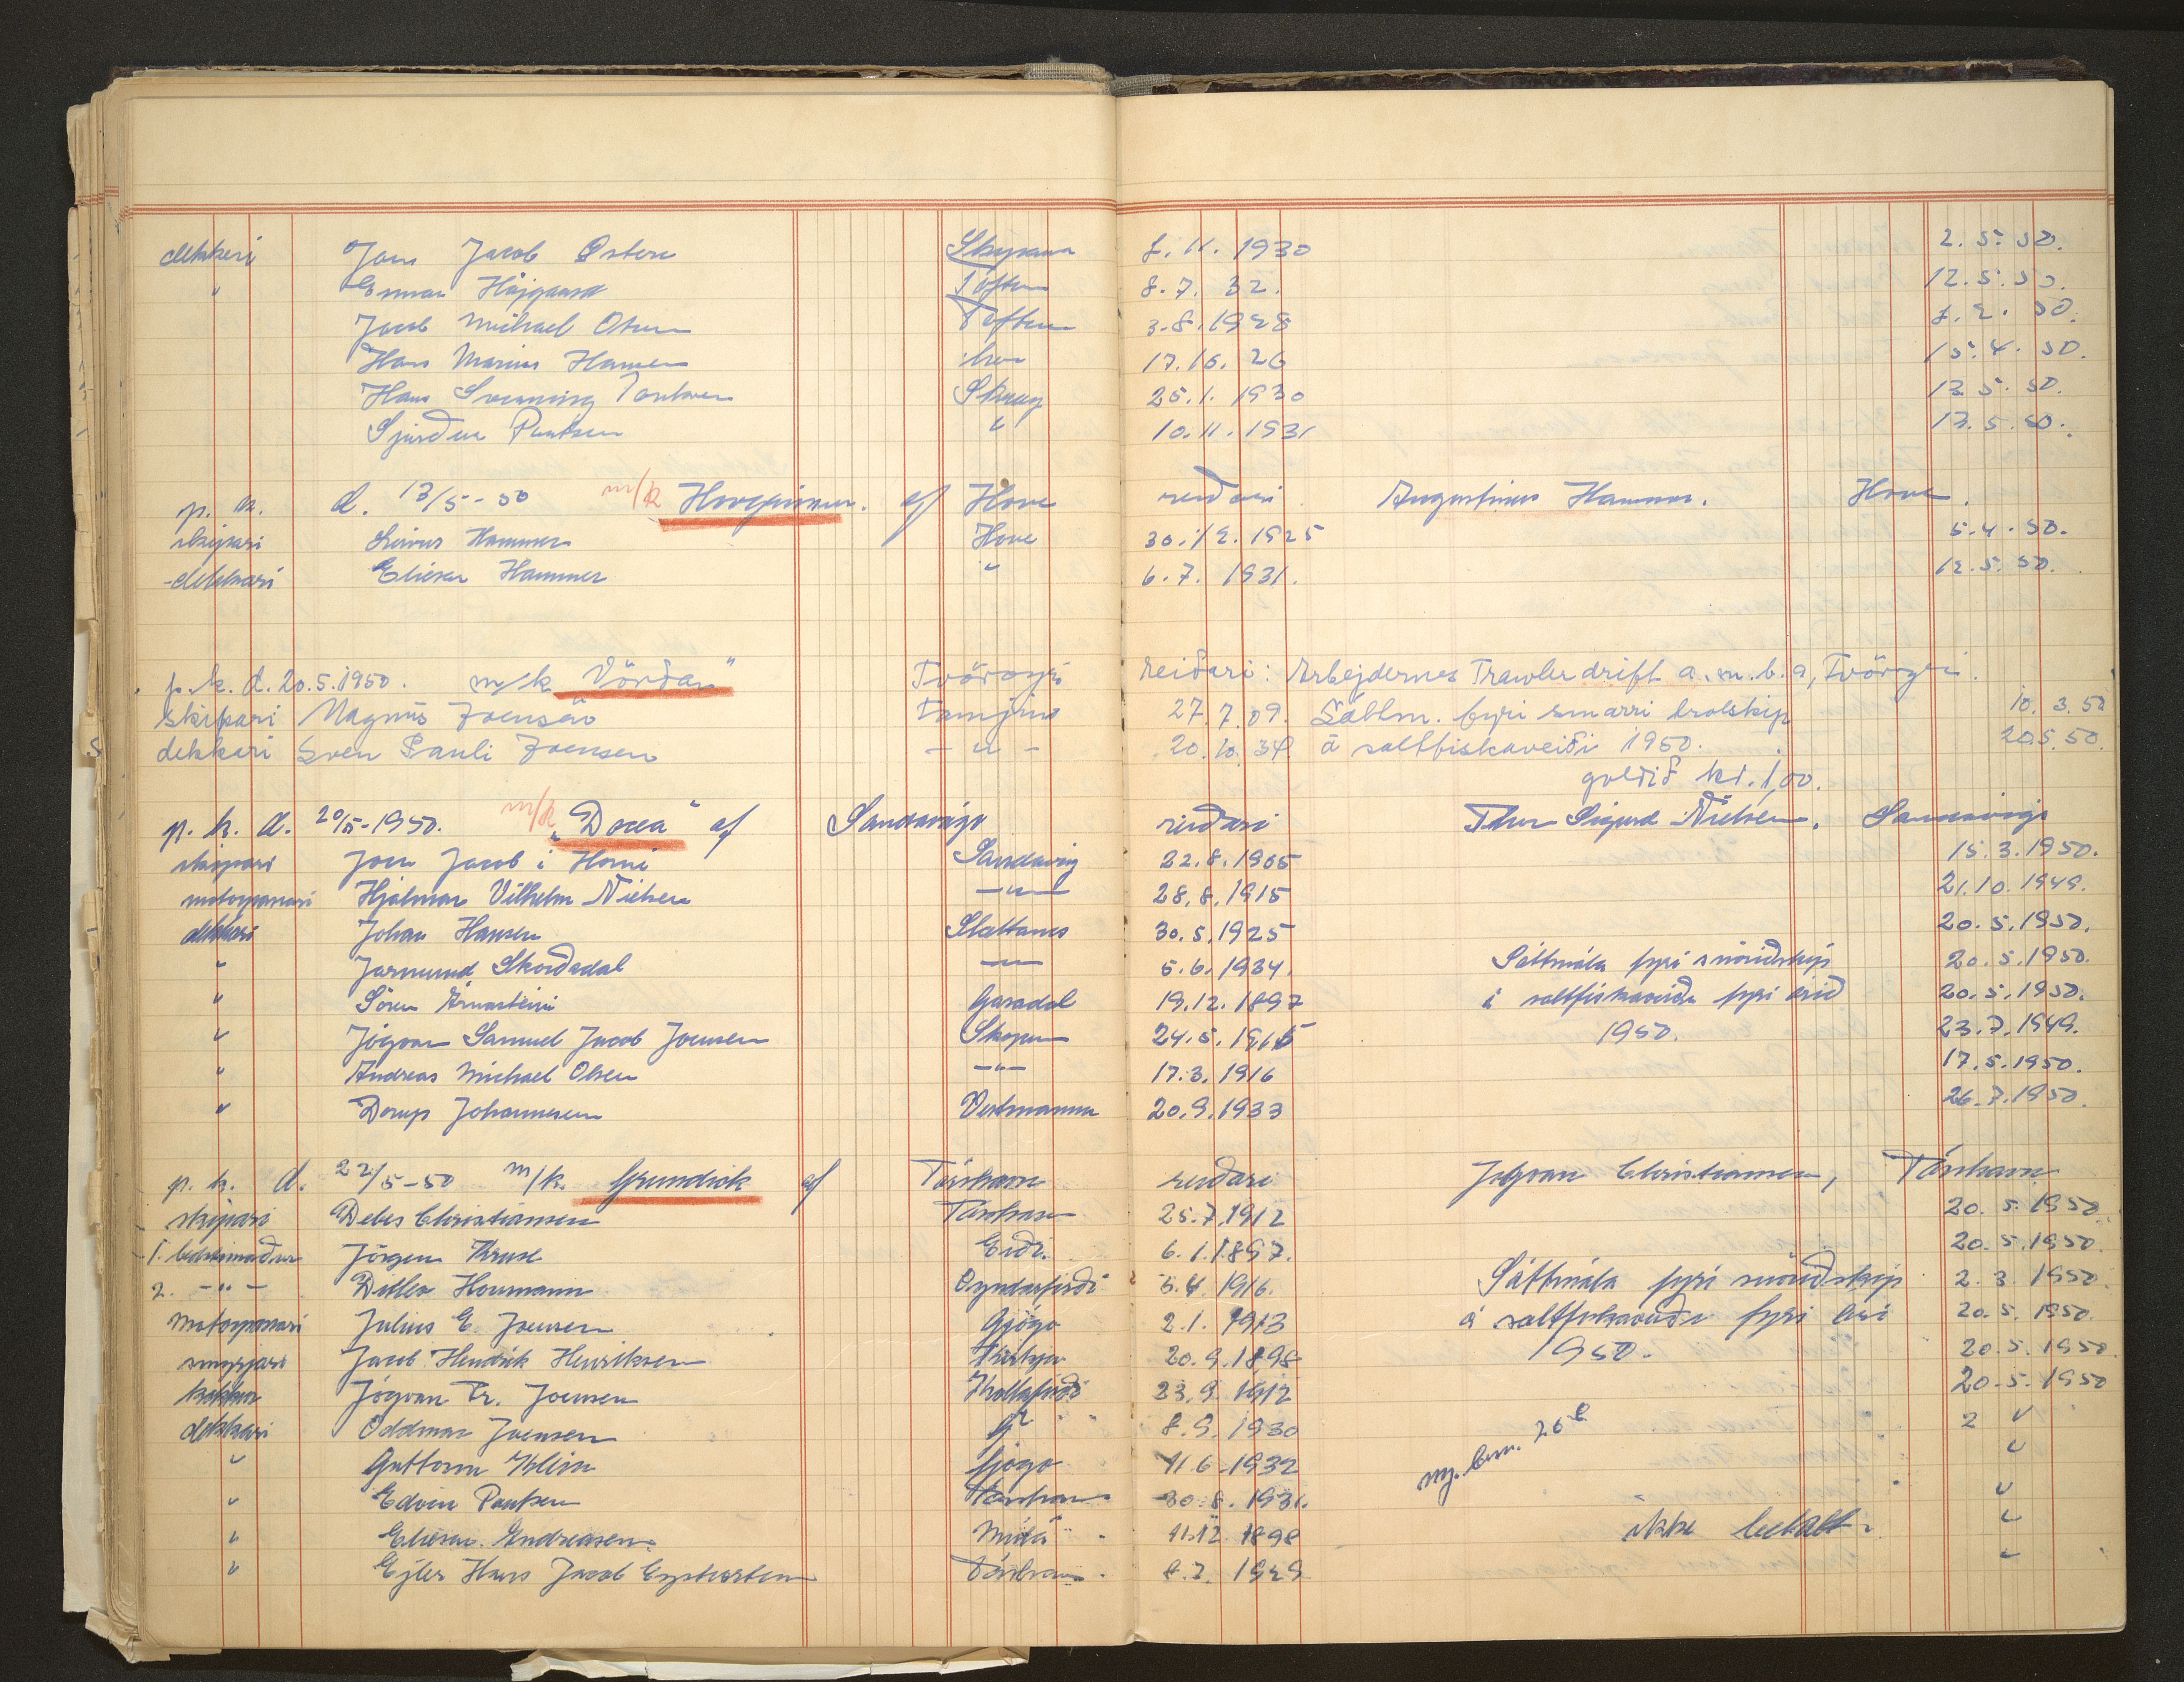 dekkari Joen Jacob Østerø 7.11.1930 2.5.50.
" Einar Højgaard Toften 8.7.32. 12.5.50.
Jacob Michael Olsen Toften 3.8.1928 7.2.50.
Hans Marius Hansen 17.10.26 15.4.50.
Hans Svenning 25.1.1930 13.5.50.
Sjúrður Poulsen " 10.11.1931 13.5.50.
p. k. d. 13/5-50 m/k af Hove reiðari Augustinus Hammer. Hove.
skipari Hammer Hove 30.12.1925 5.4.50.
dekkari Elieser Hammer " 6.7.1931. 12.5.50.
p. k. d. 20.5.1950. m/k "Vörðan" Tvöroyri reiðari: Arbejdernes Trawlerdrift a.m.b.a, Tvöroyri.
skipari Magnus Joensen 27.7.09. Sáttm. fyri smærri trolskip 10.3.50
dekkari Sven Pauli Joensen - " - 20.10.34. á saltfiskaveiði 1950. 20.5.50.
goldið kr. 1,00.
p. k. d. 20/5-1950. m/k "Docea" af Sandavági reiðari Sigurd Nielsen, Sandavági
skipari Joen Jacob í Horni Sandavág 22.8.1905 15.3.1950.
motorpassari Hjalmar Vilhelm Nielsen - " - 28.8.1915 21.10.1949.
dekkari Johan Hansen Slættanes 30.5.1925 20.5.1950.
" Jarmund Skorðadal - " - 5.6.1934. Sáttmála fyri snöriðskip 20.5.1950.
" Sören Árnasteini Gásadal 19.12.1897 á saltfiskaveiðe fyri árið 20.5.1950.
" Jógvan Samuel Jacob Joensen Skopun 24.5.1915 1950. 23.7.1949.
" Andreas Michael Olsen - " - 17.3.1916 17.5.1950.
" Dorup Johannesen Vestmanna 20.9.1933 26.7.1950.
p. k. d. 22/5-50 m/k. Grundick af Tórshavn reiðari Jógvan Christiansen, Tórshavn
skipari Debes Christiansen Tórshavn 25.7.1912 20.5.1950
1. bestimaður Jörgen Kruse Eiði. 6.1.1897. 20.5.1950.
2. - " - Ditlev Hovmann Oyndarfirði 3.4.1916. Sáttmála fyri snöriðskip 2.3.1950
motorpassari Julius E. Joensen Gjógv 2.1.1913 á saltfiskaveiðe fyri árið 20.5.1950.
smyrjari Jacob Hendrik Henriksen 20.9.1898 1950. 20.5.1950.
kokkur Jógvan Fr. Joensen Kollafirði 23.9.1912 20.5.1950
dekkari Oddmar Joensen 8.9.1930 2 "
" Guttorm Klein Gjógv 11.6.1932 "
" Edvin Poulsen Tórshavn 30.8.1931. "
" Elieser Andreasen 11.12.1898 ikke betalt. "
" Ejler Hans Jacob Tórshavn. 1929 "